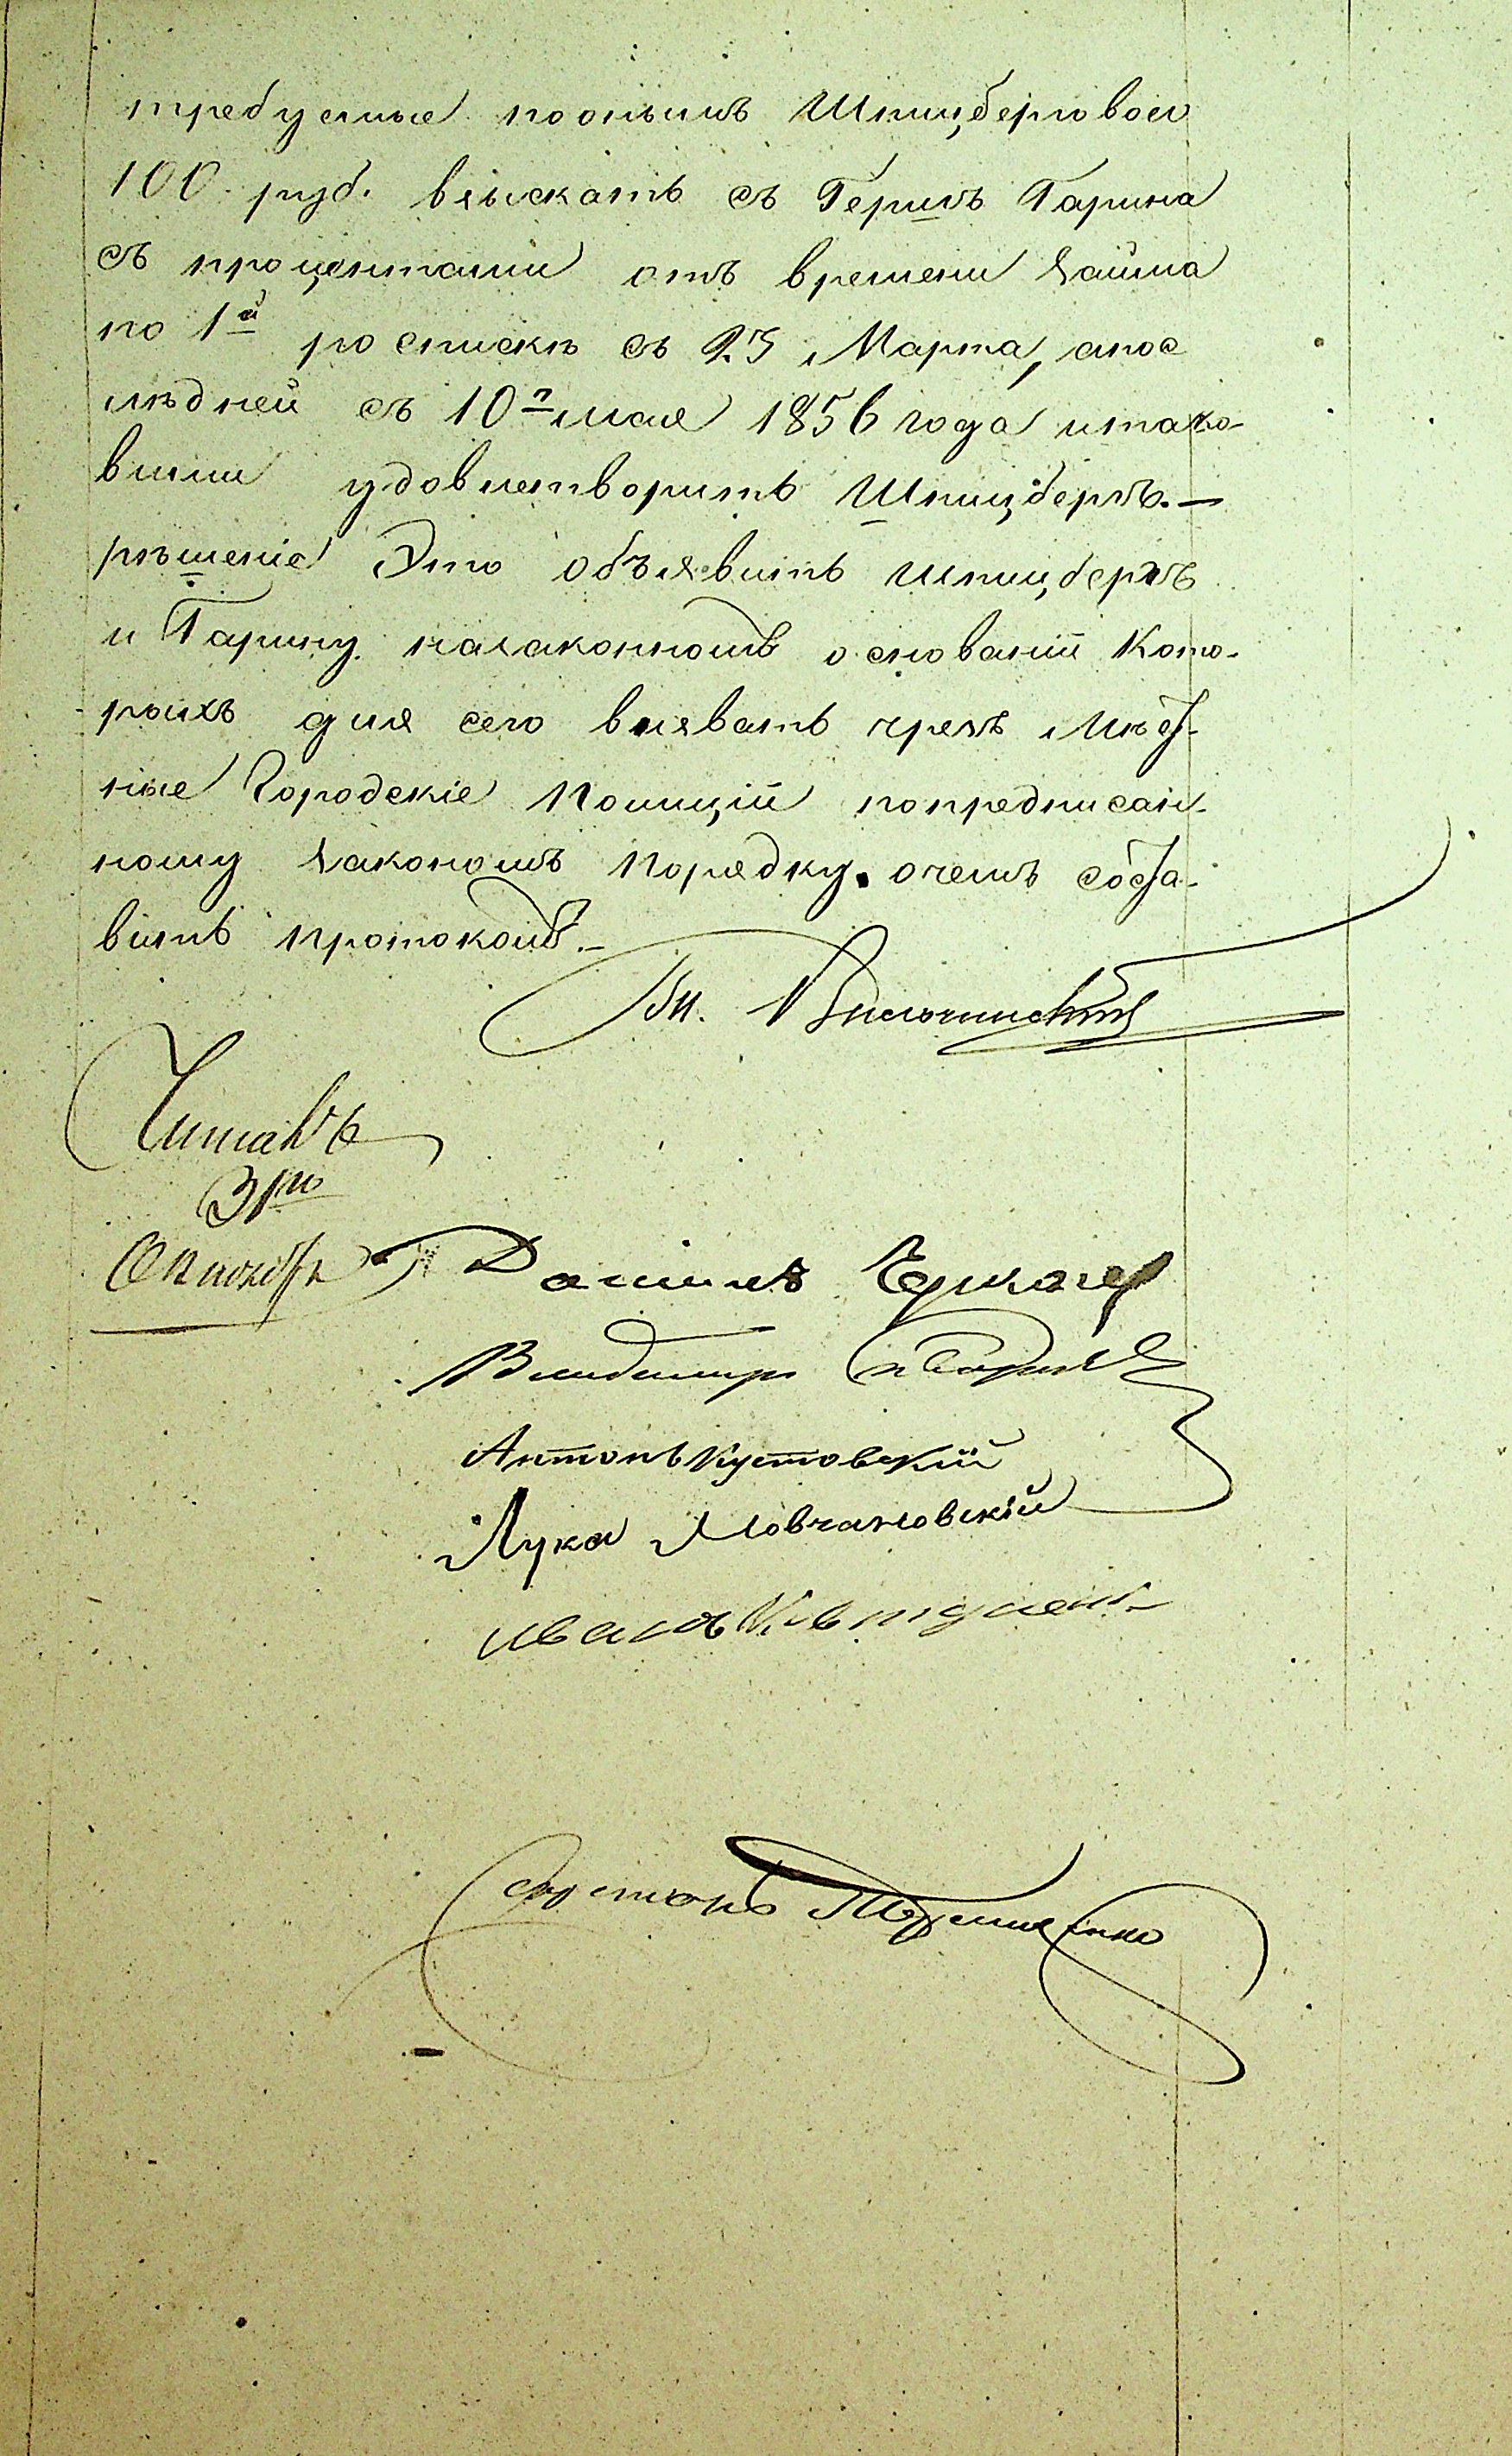 требуемые пооным Шпицберговою
100 руб. взыскать съ Гершъ Гарина
съ процентами отъ времени займа
по 1й роспискѣ съ 23 Марта, апос
лѣдней съ 10г мая 1856 года итако-
выми удовлетворить Шпицбергъ.—
рѣшеніе Это объявить шпицбергъ
и Гарину назаконномъ основаніи Кото-
рыхъ для сего вызвать чрезъ Мѣст-
ные Городскіе Полиціи попредписан-
ному закономъ Порядку. очемъ соста-
вить протоколъ.—
Читалъ
31го
Октября
Даніилъ
Владимиръ
Антонъ Кустовскій
Лука Мовчановскій
Иванъ